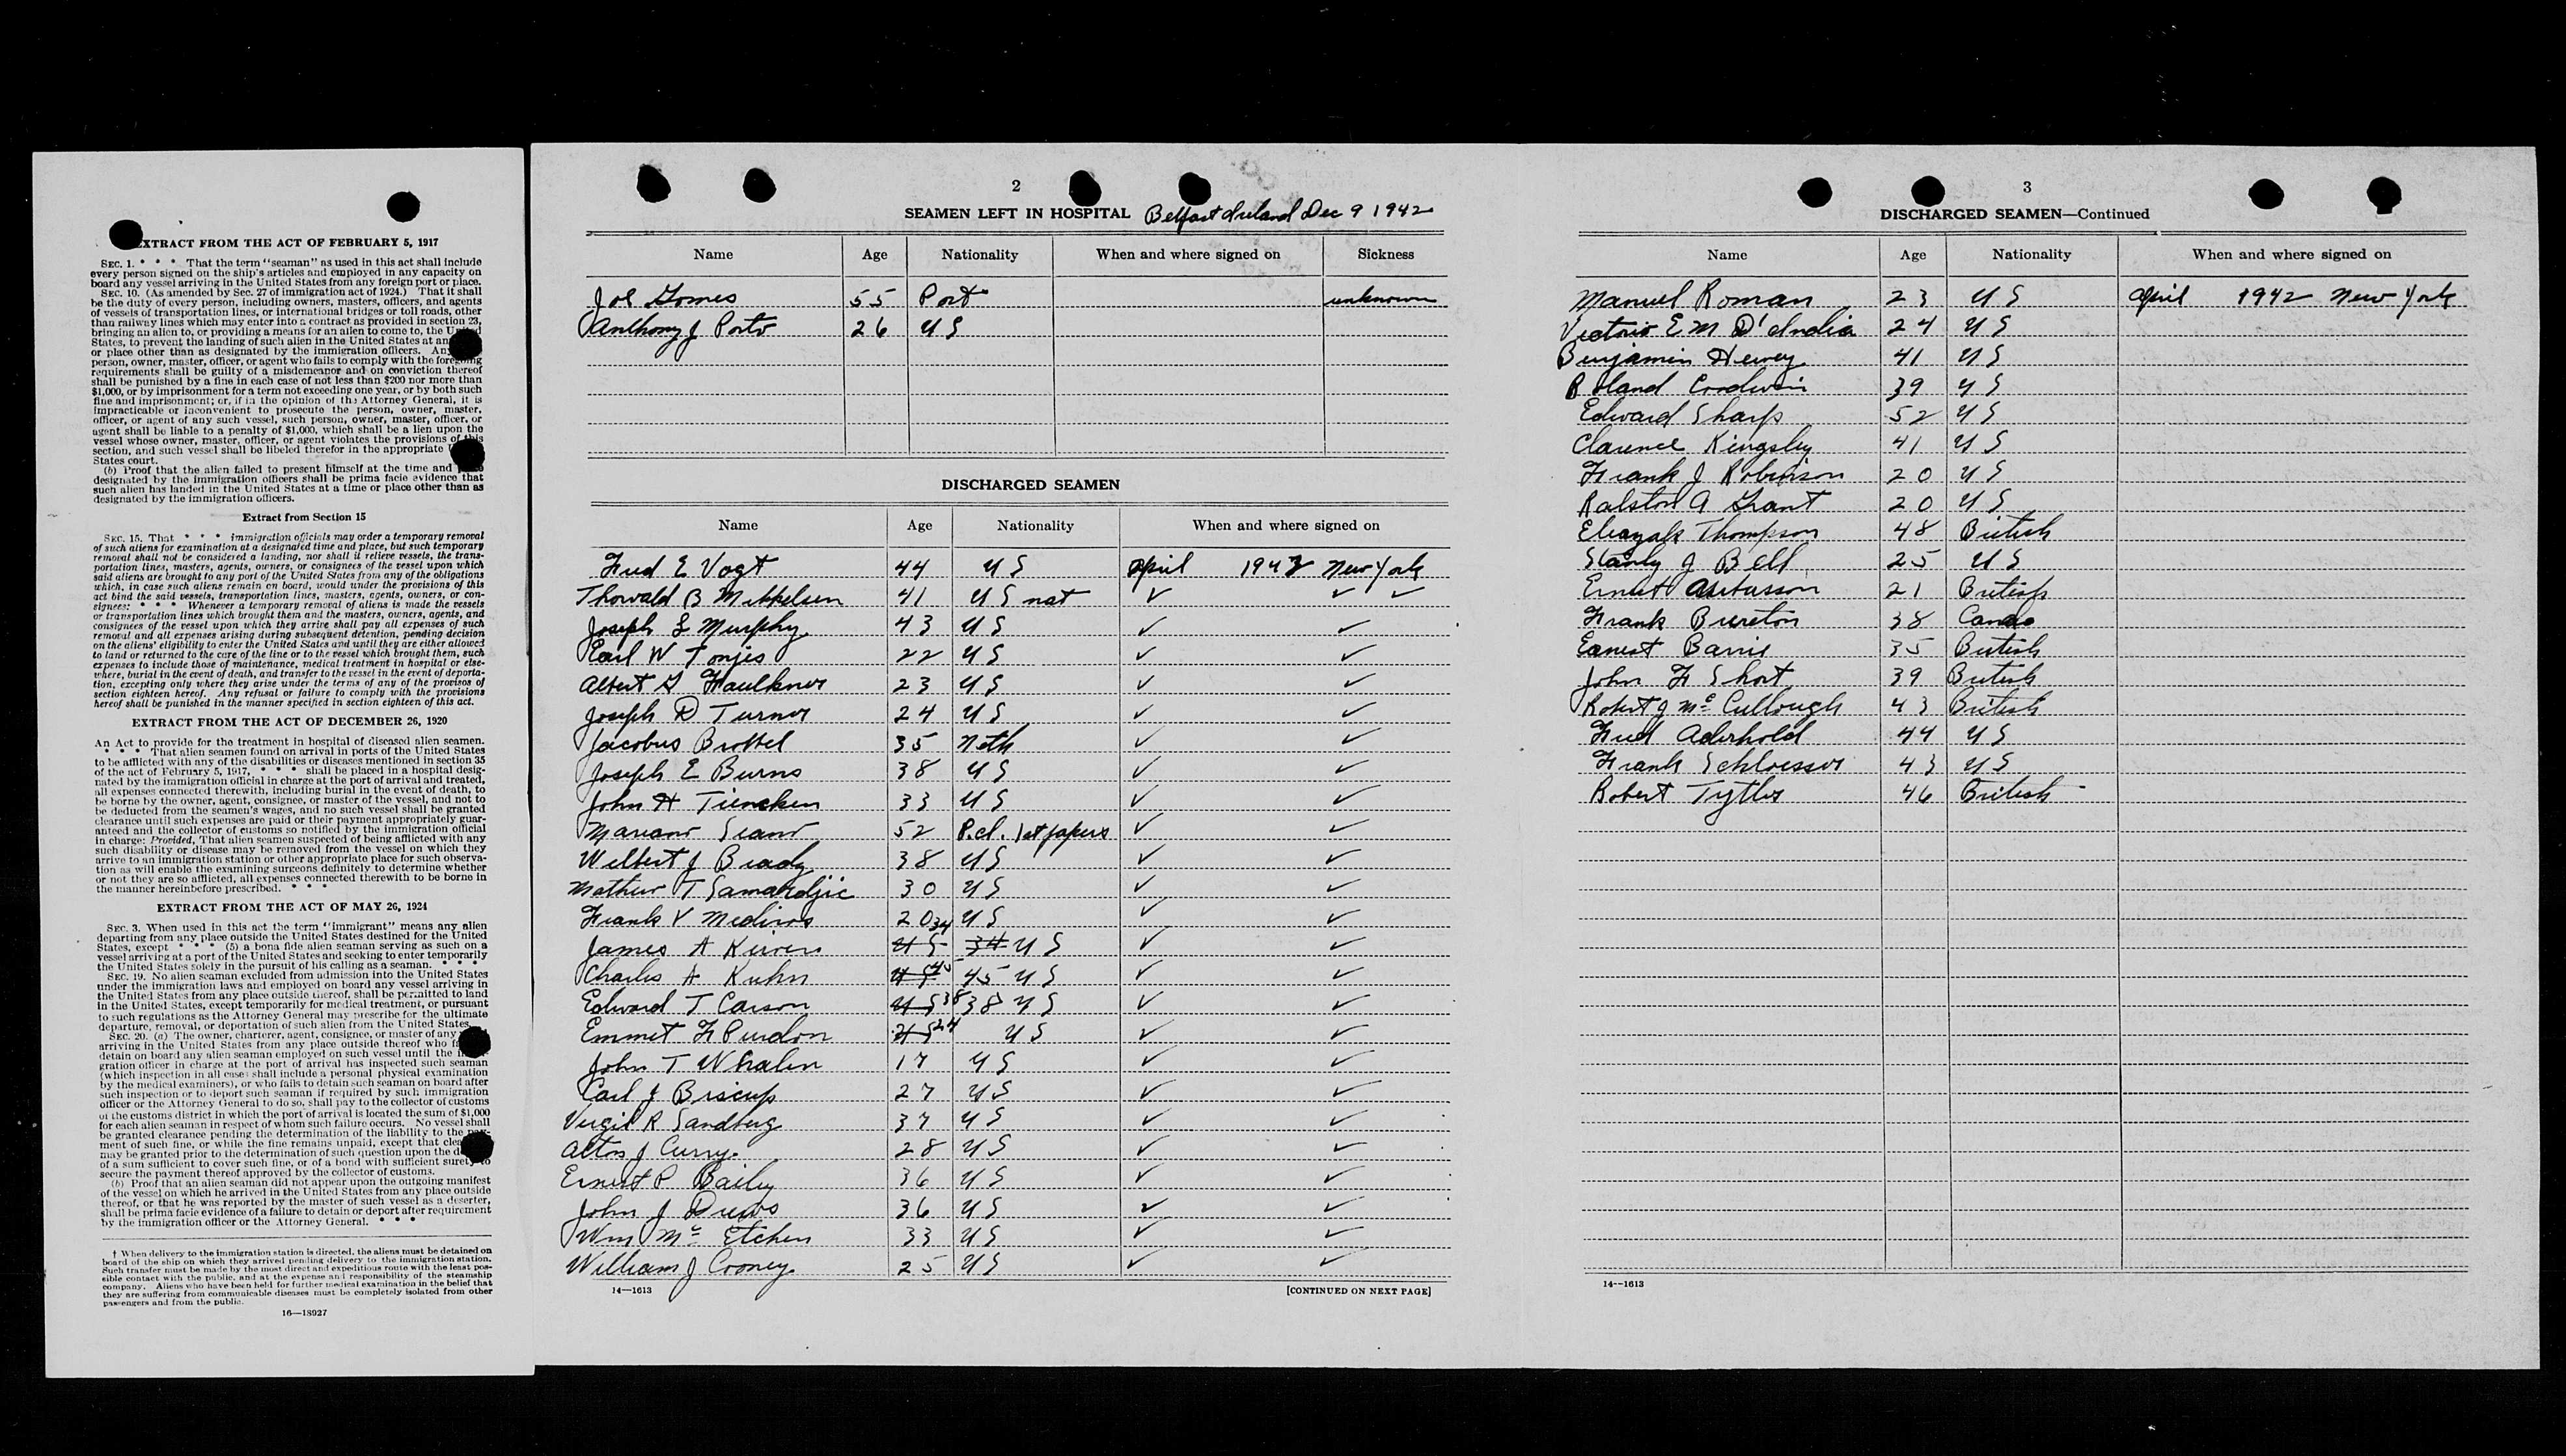 EXTRACT FROM THE ACT OF FEBRUARY 5, 1917
SEC. 1. * * * That the term "seaman" as used in this act shall include
every person signed on the ship's articles and employed in any capacity on
board any vessel arriving in the United States from any foreign port or place.
SEC. 10. (As amended by Sec. 27 of immigration act of 1924.) That it shall
be the duty of every person, including owners, masters, officers, and agents
of vessels of transportation lines, or international bridges or toll roads, other
than railway lines which may enter into a contract as provided in section 23,
bringing an alien to, or providing a means for an alien to come to, the United
States, to prevent the landing of such alien in the United States at any
or place other than as designated by the immigration officers. Any
person, owner, master, officer, or agent who fails to comply with the foregoing
requirements shall be guilty of a misdemeanor and on conviction thereof
shall be punished by a fine in each case of not less than $200 nor more than
$1,000, or by imprisonment for a term not exceeding one year, or by both such
fine and imprisonment; or, if in the opinion of the Attorney General, it is
impracticable or inconvenient to prosecute the person, owner, master,
officer, or agent of any such vessel, such person, owner, master, officer, or
agent shall be liable to a penalty of $1,000, which shall be a lien upon the
vessel whose owner, master, officer, or agent violates the provisions of this
section, and such vessel shall be libeled therefor in the appropriate
States court.
(b) Proof that the alien failed to present himself at the time and place
designated by the immigration officers shall be prima facie evidence that
such alien has landed in the United States at a time or place other than as
designated by the immigration officers.
Extract from Section 15
SEC. 15. That * * * immigration officials may order a temporary removal
of such aliens for examination at a designated time and place, but such temporary
removal shall not be considered a landing, nor shall it relieve vessels, the trans-
portation lines, masters, agents, owners, or consignees of the vessel upon which
said aliens are brought to any port of the United States from any of the obligations
which, in case such aliens remain on board, would under the provisions of this
act bind the said vessels, transportation lines, masters, agents, owners, or con-
signees: * * * Whenever a temporary removal of aliens is made the vessels
or transportation lines which brought them and the masters, owners, agents, and
consignees of the vessel upon which they arrive shall pay all expenses of such
removal and all expenses arising during subsequent detention, pending decision
on the aliens' eligibility to enter the United States and until they are either allowed
to land or returned to the care of the line or to the vessel which brought them, such
expenses to include those of maintenance, medical treatment in hospital or else-
where, burial in the event of death, and transfer to the vessel in the event of deporta-
tion, excepting only where they arise under the terms of any of the provisos of
section eighteen hereof. Any refusal or failure to comply with the provisions
hereof shall be punished in the manner specified in section eighteen of this act.
EXTRACT FROM THE ACT OF DECEMBER 26, 1920
An Act to provide for the treatment in hospital of diseased alien seamen.
* * * That alien seamen found on arrival in ports of the United States
to be afflicted with any of the disabilities or diseases mentioned in section 35
of the act of February 5, 1917, * * * shall be placed in a hospital desig-
nated by the immigration official in charge at the port of arrival and treated,
all expenses connected therewith, including burial in the event of death, to
be borne by the owner, agent, consignee, or master of the vessel, and not to
be deducted from the seamen's wages, and no such vessel shall be granted
clearance until such expenses are paid or their payment appropriately guar-
anteed and the collector of customs so notified by the immigration official
in charge: Provided, That alien seamen suspected of being afflicted with any
such disability or disease may be removed from the vessel on which they
arrive to an immigration station or other appropriate place for such observa-
tion as will enable the examining surgeons definitely to determine whether
or not they are so afflicted, all expenses connected therewith to be borne in
the manner hereinbefore prescribed. * * *
EXTRACT FROM THE ACT OF MAY 26, 1924
SEC. 3. When used in this act the term "immigrant" means any alien
departing from any place outside the United States destined for the United
States, except * * * (5) a bona fide alien seaman serving as such on a
vessel arriving at a port of the United States and seeking to enter temporarily
the United States solely in the pursuit of his calling as a seaman. * * *
SEC. 19. No alien seaman excluded from admission into the United States
under the immigration laws and employed on board any vessel arriving in
the United States from any place outside thereof, shall be permitted to land
in the United States, except temporarily for medical treatment, or pursuant
to such regulations as the Attorney General may prescribe for the ultimate
departure, removal, or deportation of such alien from the United States.
SEC. 20. (a) The owner, charterer, agent, consignee, or master of any
arriving in the United States from any place outside thereof who
detain on board any alien seaman employed on such vessel until the
gration officer in charge at the port of arrival has inspected such seaman
(which inspection in all cases shall include a personal physical examination
by the medical examiners), or who fails to detain such seaman on board after
such inspection or to deport such seaman if required by such immigration
officer or the Attorney General to do so, shall pay to the collector of customs
of the customs district in which the port of arrival is located the sum of $1,000
for each alien seaman in respect of whom such failure occurs. No vessel shall
be granted clearance pending the determination of the liability to the pay-
ment of such fine, or while the fine remains unpaid, except that
may be granted prior to the determination of such question upon the
of a sum sufficient to cover such fine, or of a bond with sufficient surety to
secure the payment thereof approved by the collector of customs.
(b) Proof that an alien seaman did not appear upon the outgoing manifest
of the vessel on which he arrived in the United States from any place outside
thereof, or that he was reported by the master of such vessel as a deserter,
shall be prima facie evidence of a failure to detain or deport after requirement
by the immigration officer or the Attorney General. * * *
† When delivery to the immigration station is directed, the aliens must be detained on
board of the ship on which they arrived pending delivery to the immigration station.
Such transfer must be made by the most direct and expeditious route with the least pos-
sible contact with the public, and at the expense and responsibility of the steamship
company. Aliens who have been held for further medical examination in the belief that
they are suffering from communicable diseases must be completely isolated from other
passengers and from the public.
16—18927
2
SEAMEN LEFT IN HOSPITAL Belfast Ireland Dec 9 1942
Name Age Nationality When and where signed on Sickness
Joe Gomes 55 Port unknown
Anthony J Porto 26 US
DISCHARGED SEAMEN
Name Age Nationality When and where signed on
Fred E Vogt 44 US April 1942 New York
Thorwald B Mikkelsen 41 US nat ✓ ✓ ✓
Joseph L Murphy 43 US ✓ ✓
Earl W Tonjes 22 US ✓ ✓
Albert G Faulkner 23 US ✓ ✓
Joseph D Turner 24 US ✓ ✓
Jacobus Brottel 35 Neth ✓ ✓
Joseph E Burns 38 US ✓ ✓
John H Tiencken 33 US ✓ ✓
Mariano Seano 52 P.I. 1st papers ✓ ✓
Wilbert J Brady 38 US ✓ ✓
Mathew T Samardjic 30 US ✓ ✓
Frank V Mediros 20 US ✓ ✓
James A Kirwen US 34 34 US ✓ ✓
Charles A Kuhn US 45 45 US ✓ ✓
Edward T Carson US 38 38 US ✓ ✓
Emmet F Purdon US 24 US ✓ ✓
John T Whalen 17 US ✓ ✓
Carl J Biscup 27 US ✓ ✓
Virgil R Sandberg 37 US ✓ ✓
Alton J Curry 28 US ✓ ✓
Ernest P Bailey 36 US ✓ ✓
John J Drews 36 US ✓ ✓
Wm Mc Etchen 33 US ✓ ✓
William J Cooney 25 US ✓ ✓
14—1613 [CONTINUED ON NEXT PAGE]
3
DISCHARGED SEAMEN—Continued
Name Age Nationality When and where signed on
Manuel Roman 23 US April 1942 New York
Victorio E M D'India 24 US
Benjamin Hewey 41 US
Roland Goodwin 39 US
Edward Sharp 52 US
Clarence Kingsley 41 US
Frank J Robinson 20 US
Ralston A Grant 20 US
Thompson 48 British
Stanly J Bell 25 US
Ernest 21 British
Frank Brereton 38 Canada
Earnest Barris 35 British
John F Short 39 British
Robert J McCullough 43 British
Fred Aderhold 44 US
Frank Schloesser 43 US
Robert Tytler 46 British
14—1613